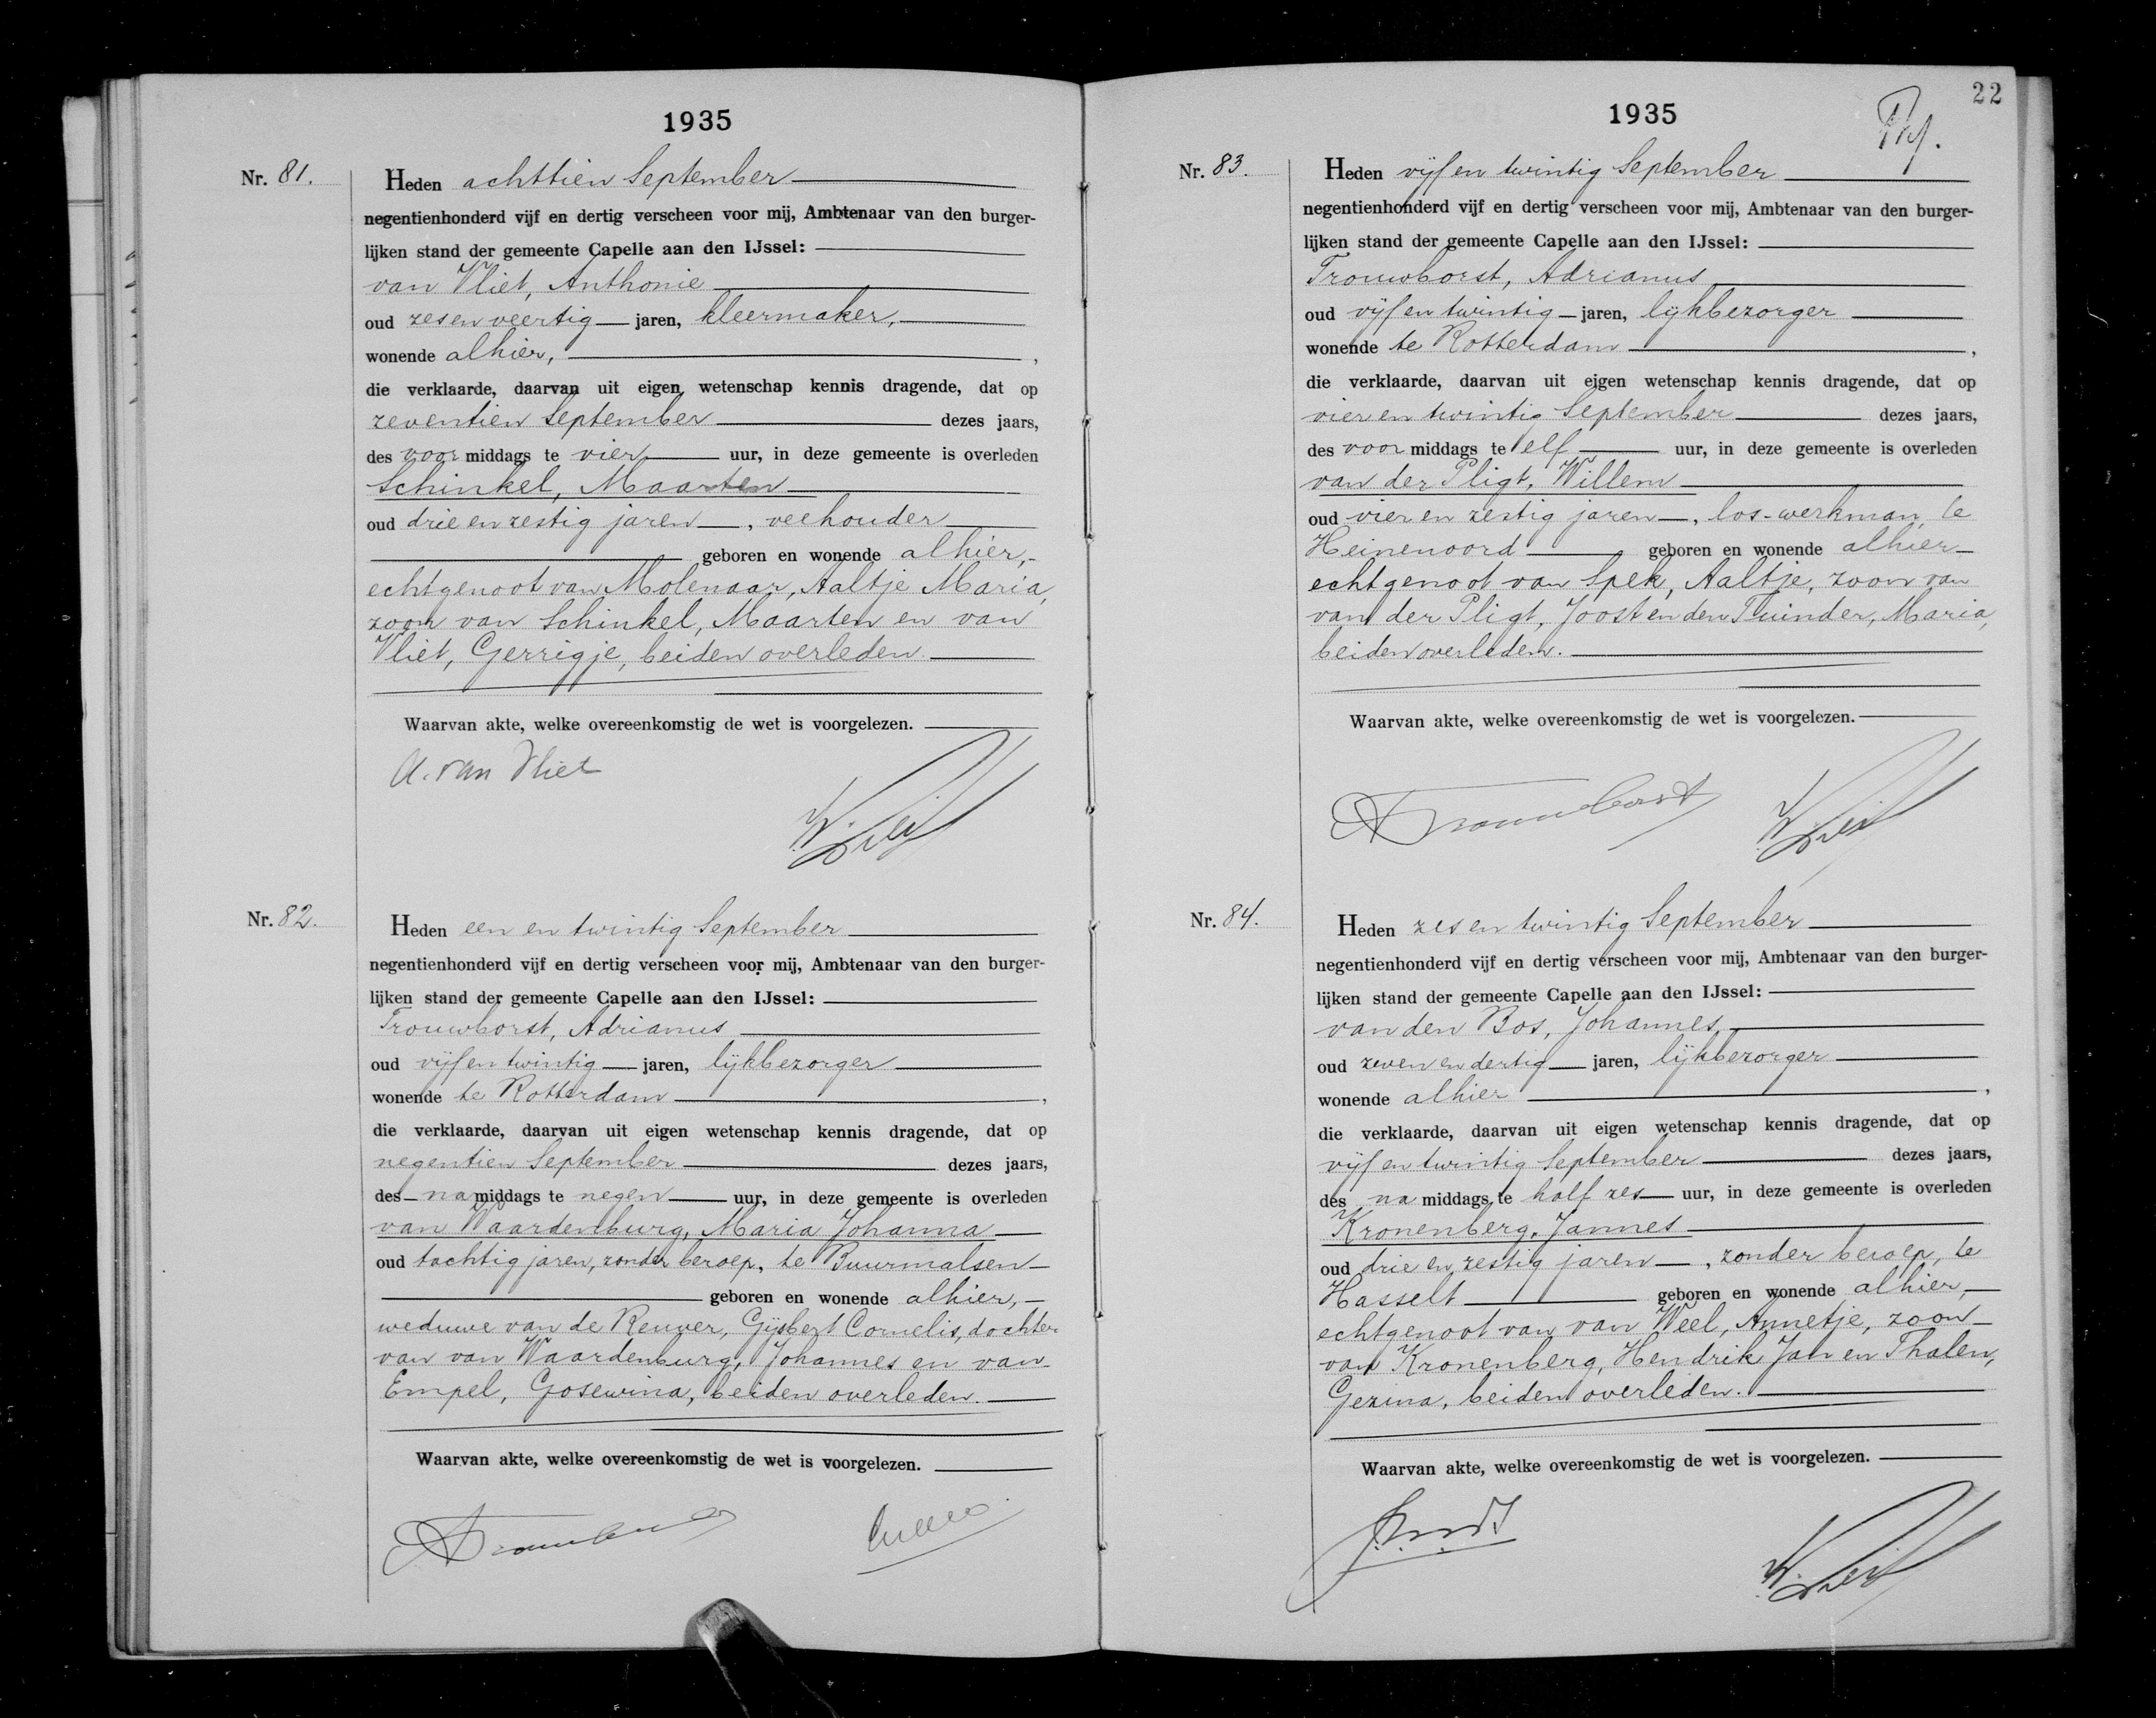 1935
Nr. 81.
Heden achttien September
negentienhonderd vijf en dertig verscheen voor mij, Ambtenaar van den burger-
lijken stand der gemeente Capelle aan den IJssel:
van Vliet, Anthonie
oud zes en veertig jaren, kleermaker,
wonende alhier, ,
die verklaarde, daarvan uit eigen wetenschap kennis dragende, dat op
zeventien September dezes jaars,
des voor middags te vier uur, in deze gemeente is overleden
Schinkel, Maarten
oud drie en zestig jaren , veehouder
geboren en wonende alhier,
echtgenoot van Molenaar, Aaltje Maria,
zoon van Schinkel, Maarten en van
Vliet, Gerrigje, beiden overleden.
Waarvan akte, welke overeenkomstig de wet is voorgelezen.
A. van Vliet
Nr. 82.
Heden een en twintig September
negentienhonderd vijf en dertig verscheen voor mij, Ambtenaar van den burger-
lijken stand der gemeente Capelle aan den IJssel:
Trouwborst, Adrianus
oud vijf en twintig jaren, lijkbezorger
wonende te Rotterdam ,
die verklaarde, daarvan uit eigen wetenschap kennis dragende, dat op
negentien September dezes jaars,
des na middags te negen uur, in deze gemeente is overleden
van Waardenburg, Maria Johanna
oud tachtig jaren, zonder beroep, te Buurmalsen
geboren en wonende alhier,
weduwe van de Reuver, Gijsbert Cornelis, dochter
van van Waardenburg, Johannes en van
Empel, Gosewina, beiden overleden.
Waarvan akte, welke overeenkomstig de wet is voorgelezen.
ATrouwborst
22
1935
Nr. 83.
Heden vijf en twintig September
negentienhonderd vijf en dertig verscheen voor mij, Ambtenaar van den burger-
lijken stand der gemeente Capelle aan den IJssel:
Trouwborst, Adrianus
oud vijf en twintig jaren, lijkbezorger
wonende te Rotterdam ,
die verklaarde, daarvan uit eigen wetenschap kennis dragende, dat op
vier en twintig September dezes jaars,
des voor middags te elf uur, in deze gemeente is overleden
van der Pligt, Willem
oud vier en zestig jaren , los-werkman, te
Heinenoord geboren en wonende alhier
echtgenoot van Spek, Aaltje, zoon van
van der Pligt, Joost en den Tuinder, Maria,
beiden overleden.
Waarvan akte, welke overeenkomstig de wet is voorgelezen.
ATrouwborst
Nr. 84.
Heden zes en twintig September
negentienhonderd vijf en dertig verscheen voor mij, Ambtenaar van den burger-
lijken stand der gemeente Capelle aan den IJssel:
van den Bos, Johannes,
oud zeven en dertig jaren, lijkbezorger
wonende alhier ,
die verklaarde, daarvan uit eigen wetenschap kennis dragende, dat op
vijf en twintig September dezes jaars,
des na middags te half zes uur, in deze gemeente is overleden
Kronenberg, Jannes
oud drie en zestig jaren , zonder beroep, te
Hasselt geboren en wonende alhier,
echtgenoot van van Weel, Annetje, zoon
van Kronenberg, Hendrik Jan en Thalen,
Gezina, beiden overleden.
Waarvan akte, welke overeenkomstig de wet is voorgelezen.